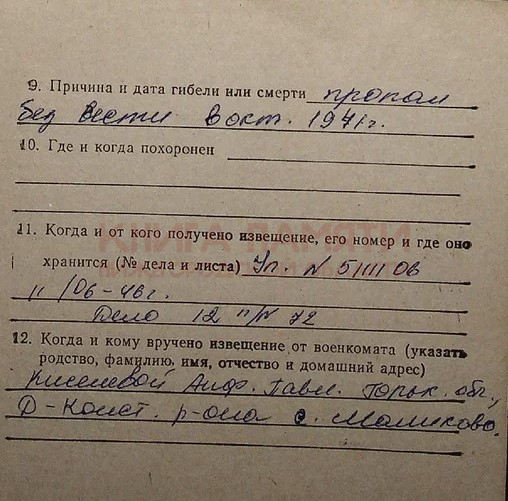 9. Причина и дата гибели или смерти пропал
без вести в окт. 1941г.
10. Где и когда похоронен
КНИГА ПАМЯТИ
11. Когда и от кого получено извещение, его номер и где оно
хранится (№ дела и листа) Уп. N 51111 06
11/06-46г.
Дело 12 п/N 72
12. Когда и кому вручено извещение от военкомата (указать
родство, фамилию, имя, отчество и домашний адрес)
Киселевой Анф. Павл. Горьк. обл.,
Д-Конст. р-она с. Маликово.